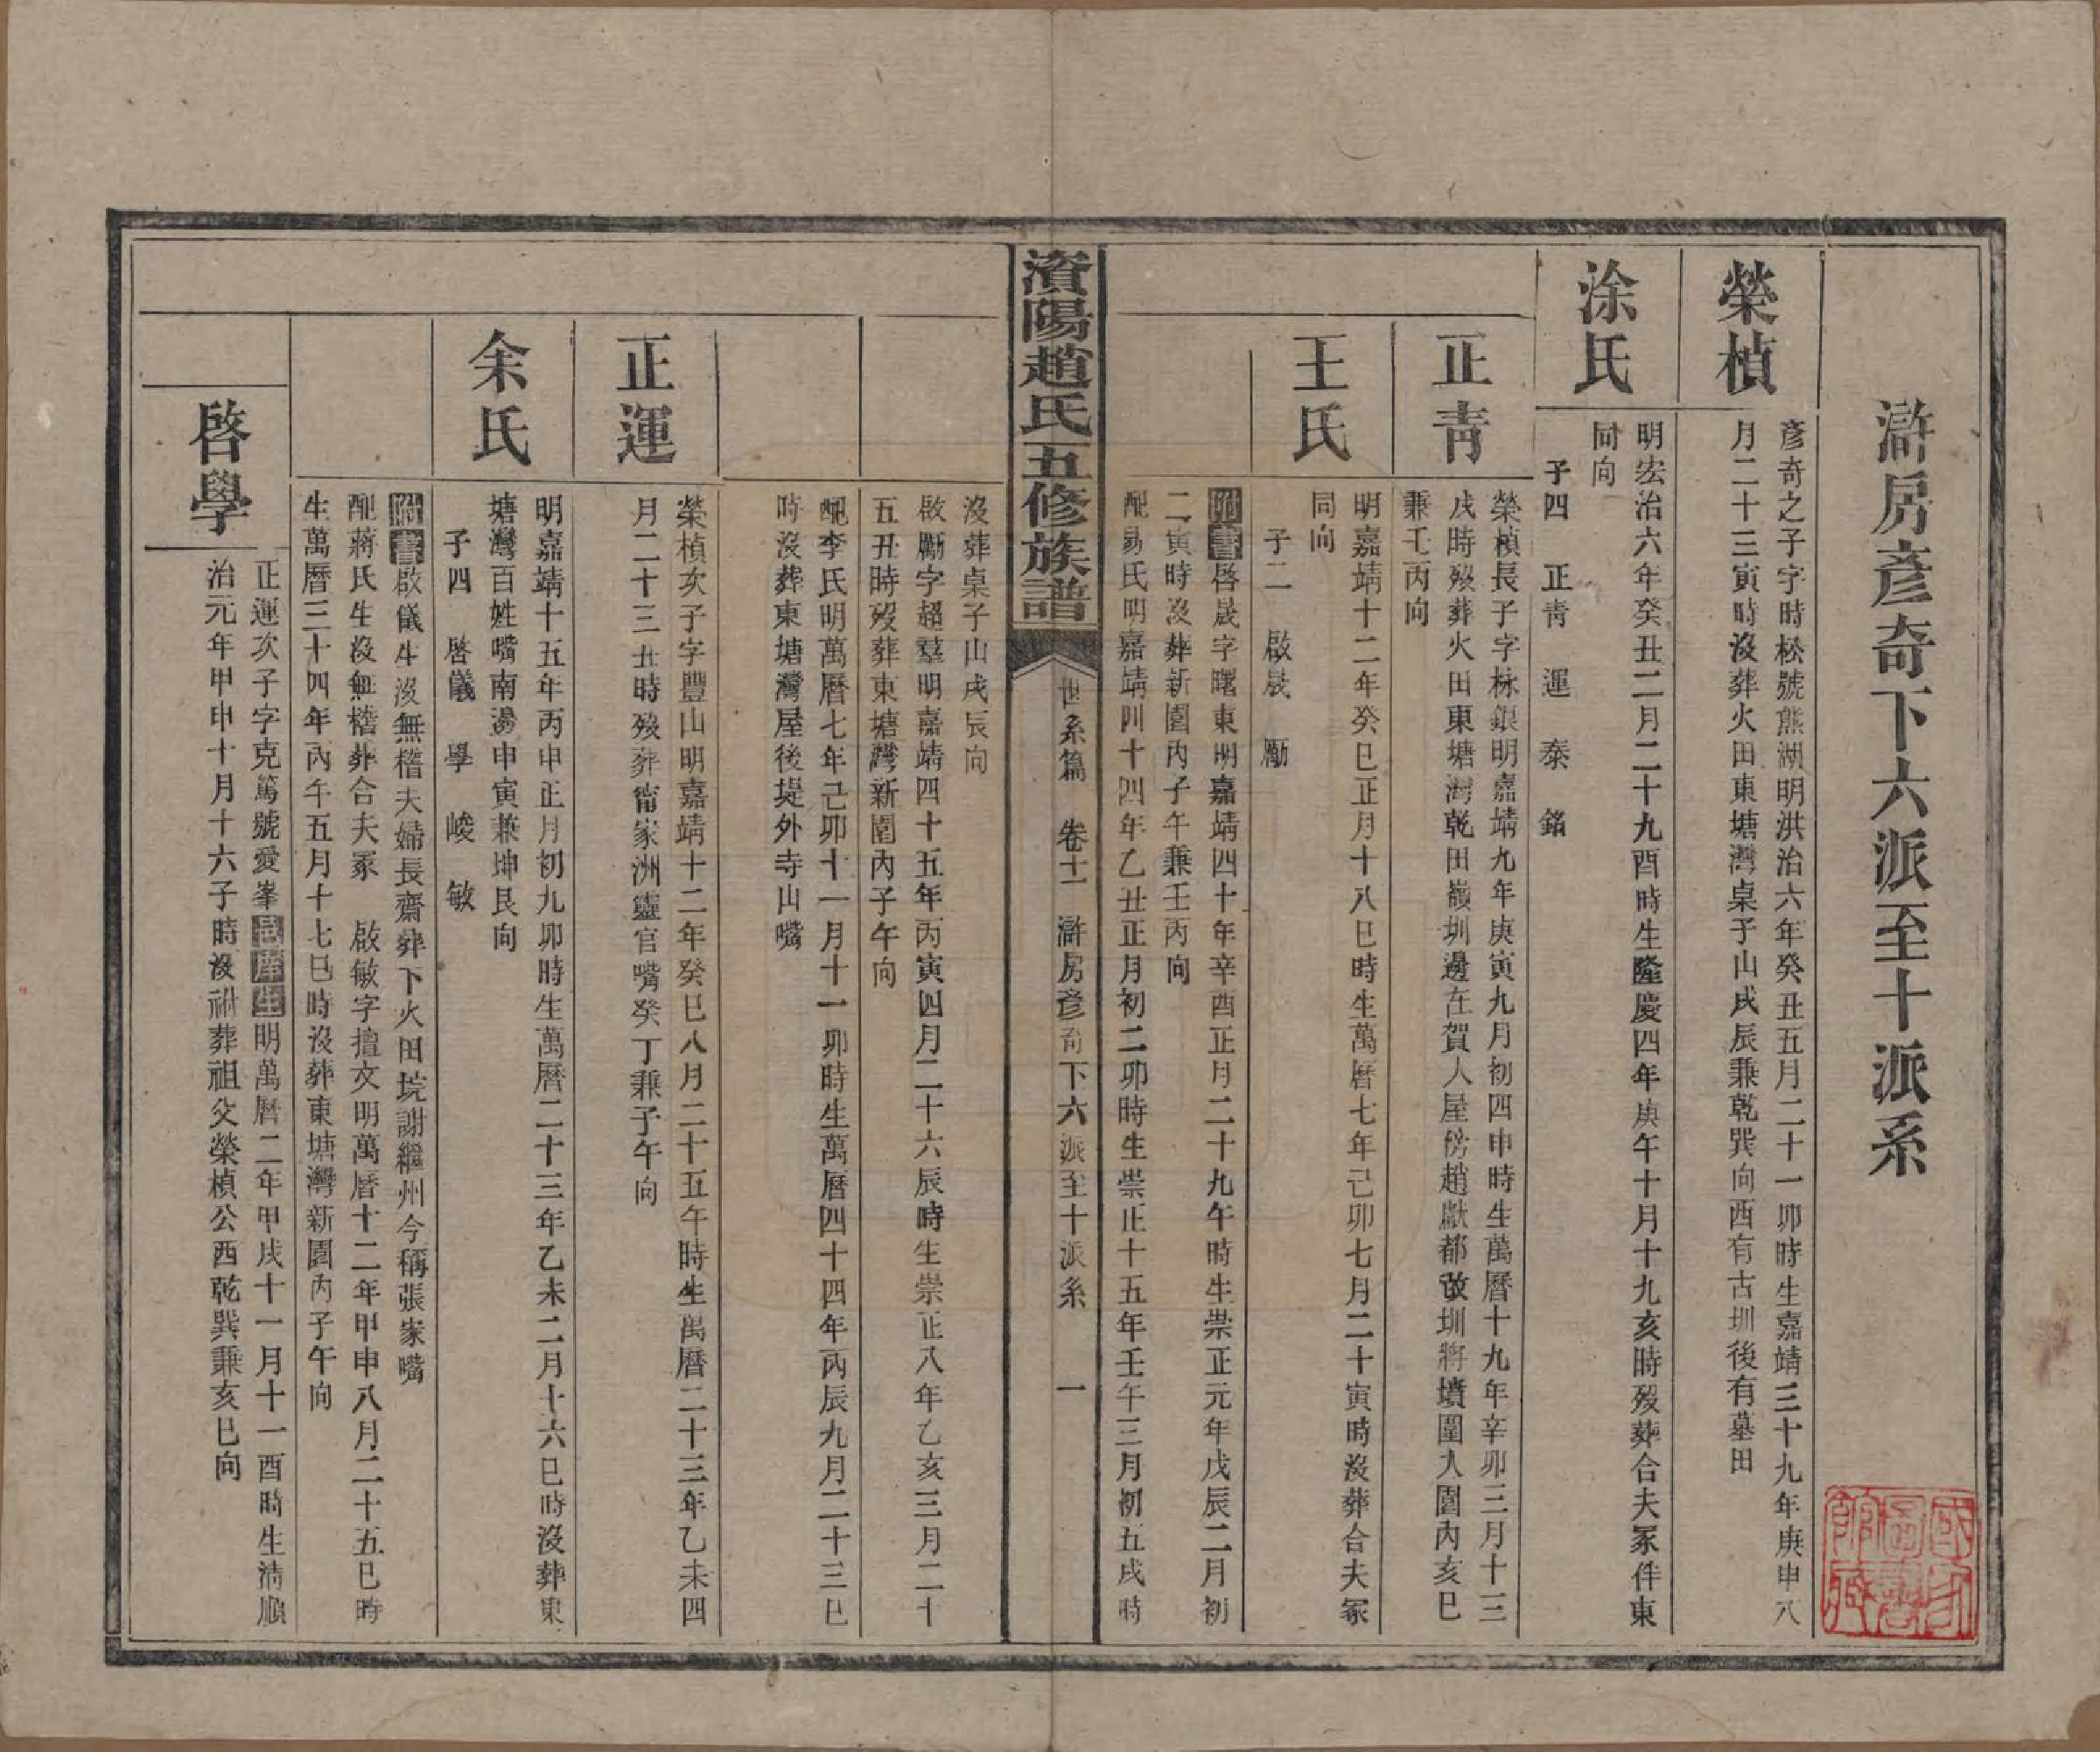 滸房彥奇下六派至十派系
榮楨
彥奇之子字時松號熊湖明洪治六年癸丑五月二十一卯時生嘉靖三十九年庚申八
月二十三寅時沒葬火田東塘灣桌子山戌辰兼乾巽向西有古圳後有墓田
涂氏
明宏治六年癸丑二月二十九酉時生隆慶四年庚午十月十九亥時歿葬合夫冢伴東
同向
子四 正靑 運 泰 銘
正靑
榮楨長子字林銀明嘉靖九年庚寅九月初四申時生萬曆十九年辛卯三月十三
戌時歿葬火田東塘灣乾田嶺圳邊在賀人屋傍趙獻都改圳將墳圍入園內亥巳
兼壬丙向
王氏
明嘉靖十二年癸巳正月十八巳時生萬曆七年己卯七月二十寅時沒葬合夫冢
同向
子二 啟晟 勵
附書啓晟字曙東明嘉靖四十年辛酉正月二十九午時生崇正元年戊辰二月初
二寅時沒葬新園內子午兼壬丙向
配易氏明嘉靖四十四年乙丑正月初二卯時生崇正十五年壬午三月初五戌時
資陽趙氏五修族譜
世系篇 卷十一 滸房彥奇下六派至十派系 一
沒葬桌子山戌辰向
啟勵字超羣明嘉靖四十五年丙寅四月二十六辰時生崇正八年乙亥三月二十
五丑時歿葬東塘灣新園內子午向
配李氏明萬曆七年己卯十一月十一卯時生萬曆四十四年丙辰九月二十三巳
時沒葬東塘灣屋後堤外寺山嘴
正運
榮楨次子字豐山明嘉靖十二年癸巳八月二十五午時生萬曆二十三年乙未四
月二十三丑時歿葬甯家洲靈官嘴癸丁兼子午向
余氏
明嘉靖十五年丙申正月初九卯時生萬曆二十三年乙未二月十六巳時沒葬東
塘灣百姓嘴南邊申寅兼坤艮向
子四 啓儀 學 峻 敏
附書啟儀生沒無稽夫婦長齋葬下火田垸謝繼州今稱張家嘴
配蔣氏生沒無稽葬合夫冢 啟敏字擅文明萬曆十二年甲申八月二十五巳時
生萬曆三十四年丙午五月十七巳時沒葬東塘灣新園內子午向
啓學
正運次子字克篤號愛峯明萬曆二年甲戌十一月十一酉時生淸順
治元年甲申十月十六子時沒祔葬祖父榮楨公西乾巽兼亥巳向